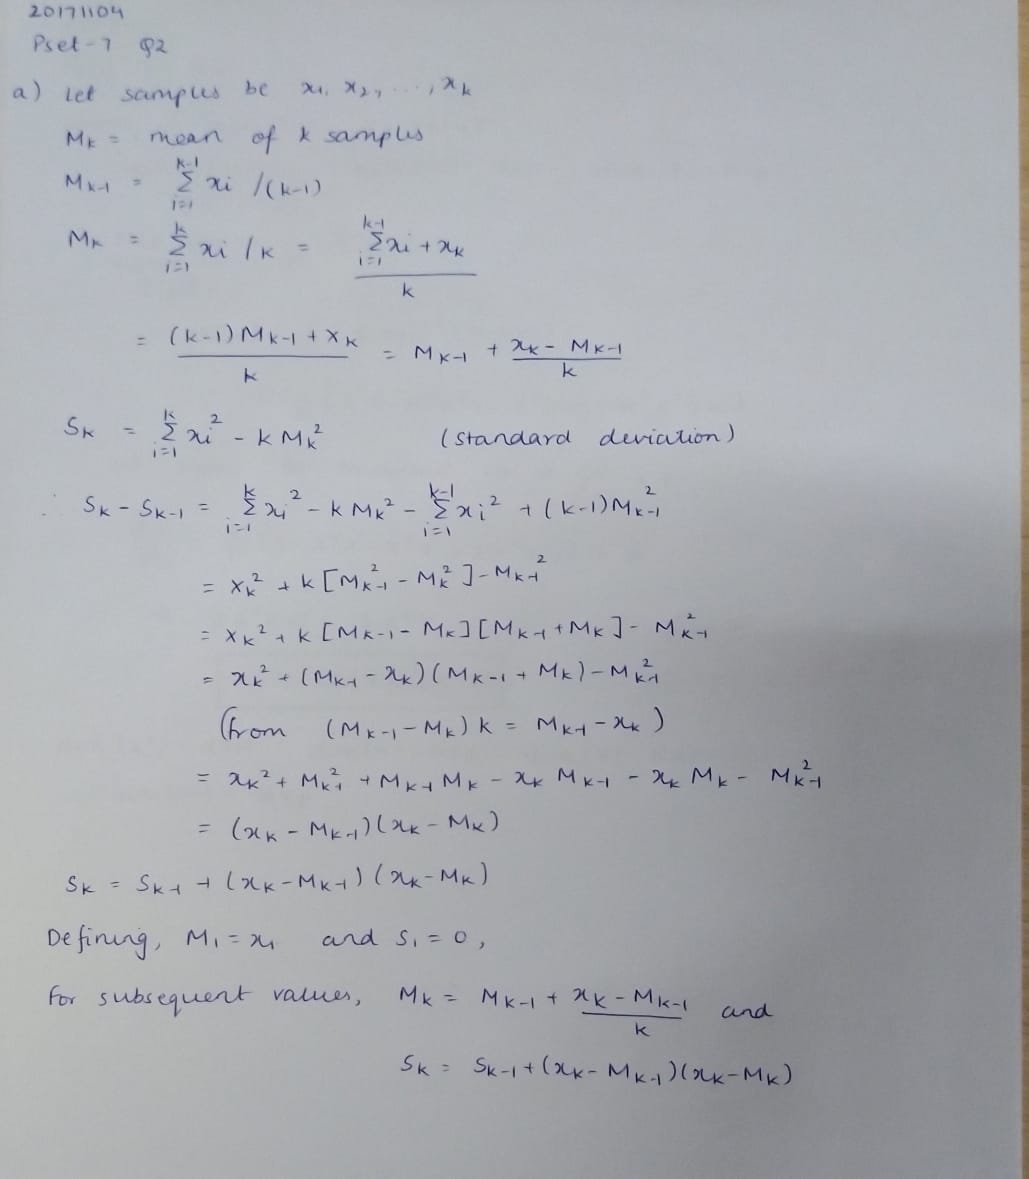 20171104
Pset-7 Q2
a) Let samples be x₁, x₂, ..., xₖ
Mₖ = mean of k samples
Mₖ₋₁ = Σᵢ₌₁ᵏ⁻¹ xᵢ /(k-1)
Mₖ = Σᵢ₌₁ᵏ xᵢ /k = (Σᵢ₌₁ᵏ⁻¹ xᵢ + xₖ)/k
= ((k-1)Mₖ₋₁ + xₖ)/k = Mₖ₋₁ + (xₖ - Mₖ₋₁)/k
Sₖ = Σᵢ₌₁ᵏ xᵢ² - k Mₖ² (standard deviation)
∴ Sₖ - Sₖ₋₁ = Σᵢ₌₁ᵏ xᵢ² - k Mₖ² - Σᵢ₌₁ᵏ⁻¹ xᵢ² + (k-1)Mₖ₋₁²
= xₖ² + k [Mₖ₋₁² - Mₖ²] - Mₖ₋₁²
= xₖ² + k [Mₖ₋₁ - Mₖ][Mₖ₋₁ + Mₖ] - Mₖ₋₁²
= xₖ² + (Mₖ₋₁ - xₖ)(Mₖ₋₁ + Mₖ) - Mₖ₋₁²
(from (Mₖ₋₁ - Mₖ) k = Mₖ₋₁ - xₖ)
= xₖ² + Mₖ₋₁² + Mₖ₋₁ Mₖ - xₖ Mₖ₋₁ - xₖ Mₖ - Mₖ₋₁²
= (xₖ - Mₖ₋₁)(xₖ - Mₖ)
Sₖ = Sₖ₋₁ + (xₖ - Mₖ₋₁)(xₖ - Mₖ)
Defining, M₁ = x₁ and S₁ = 0,
for subsequent values, Mₖ = Mₖ₋₁ + (xₖ - Mₖ₋₁)/k and
Sₖ = Sₖ₋₁ + (xₖ - Mₖ₋₁)(xₖ - Mₖ)